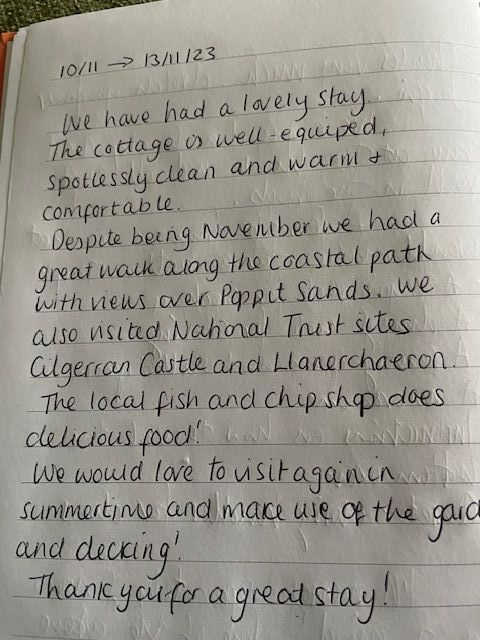 10/11 → 13/11/23
We have had a lovely stay.
The cottage is well-equiped,
spotlessly clean and warm +
comfortable.
Despite being November we had a
great walk along the coastal path
with views over Poppit Sands. We
also visited National Trust sites
Cilgerran Castle and Llanerchaeron.
The local fish and chip shop does
delicious food!
We would love to visit again in
summertime and make use of the gard
and decking!
Thank you for a great stay!